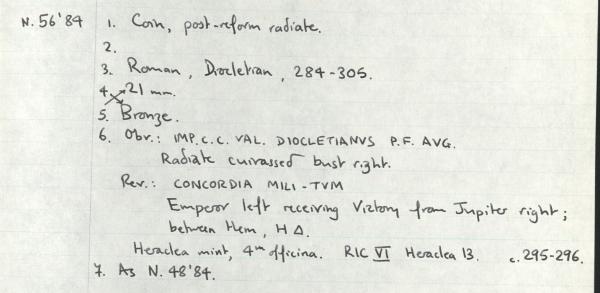 N. 56'84 1. Coin, post-reform radiate.
2.
3. Roman, Diocletian, 284-305.
4. 21 mm.
5. Bronze.
6. Obv.: IMP. C. C. VAL. DIOCLETIANVS P. F. AVG.
Radiate cuirassed bust right.
Rev.: CONCORDIA MILI-TVM
Emperor left receiving Victory from Jupiter right;
between them, H Δ.
Heraclea mint, 4th officina. RIC VI Heraclea 13. c. 295-296.
7. As N. 48'84.